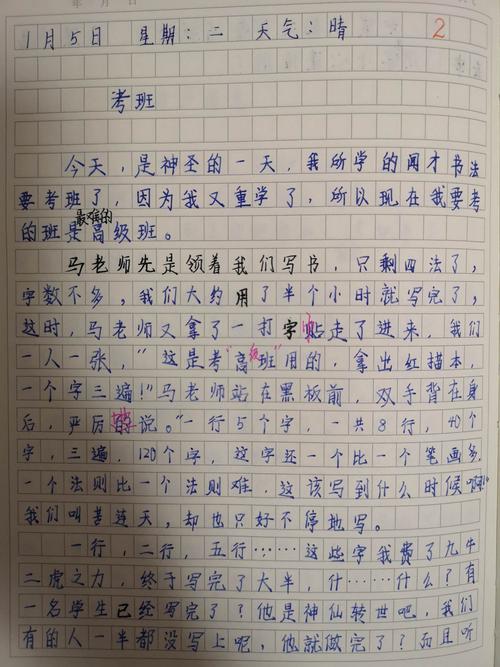 年 月 日
1月5日 星期:二 天气:晴 2
考班
今天,是神圣的一天,我所学的闻才书法
要考班了,因为我又重学了,所以现在我要考
的班是最难的高级班。
马老师先是领着我们写书,只剩四法了,
字数不多,我们大约用了半个小时就写完了,
这时,马老师又拿了一打字帖走了进来,我们
一人一张,“这是考“高级班”用的,拿出红描本,
一个字三遍!”马老师站在黑板前,双手背在身
后,严厉的说。“一行5个字,一共8行,40个
字,三遍,120个字,这字还一个比一个笔画多,
一个法则比一个法则难,这该写到什么时候啊!”
我们叫苦连天,却也只好不停地写。
一行,二行,五行……这些字我费了九牛
二虎之力,终于写完了大半,什……什么?有
一名学生已经写完了?他是神仙转世吧,我们
有的人一半都没写上呢,他就做完了?而且听